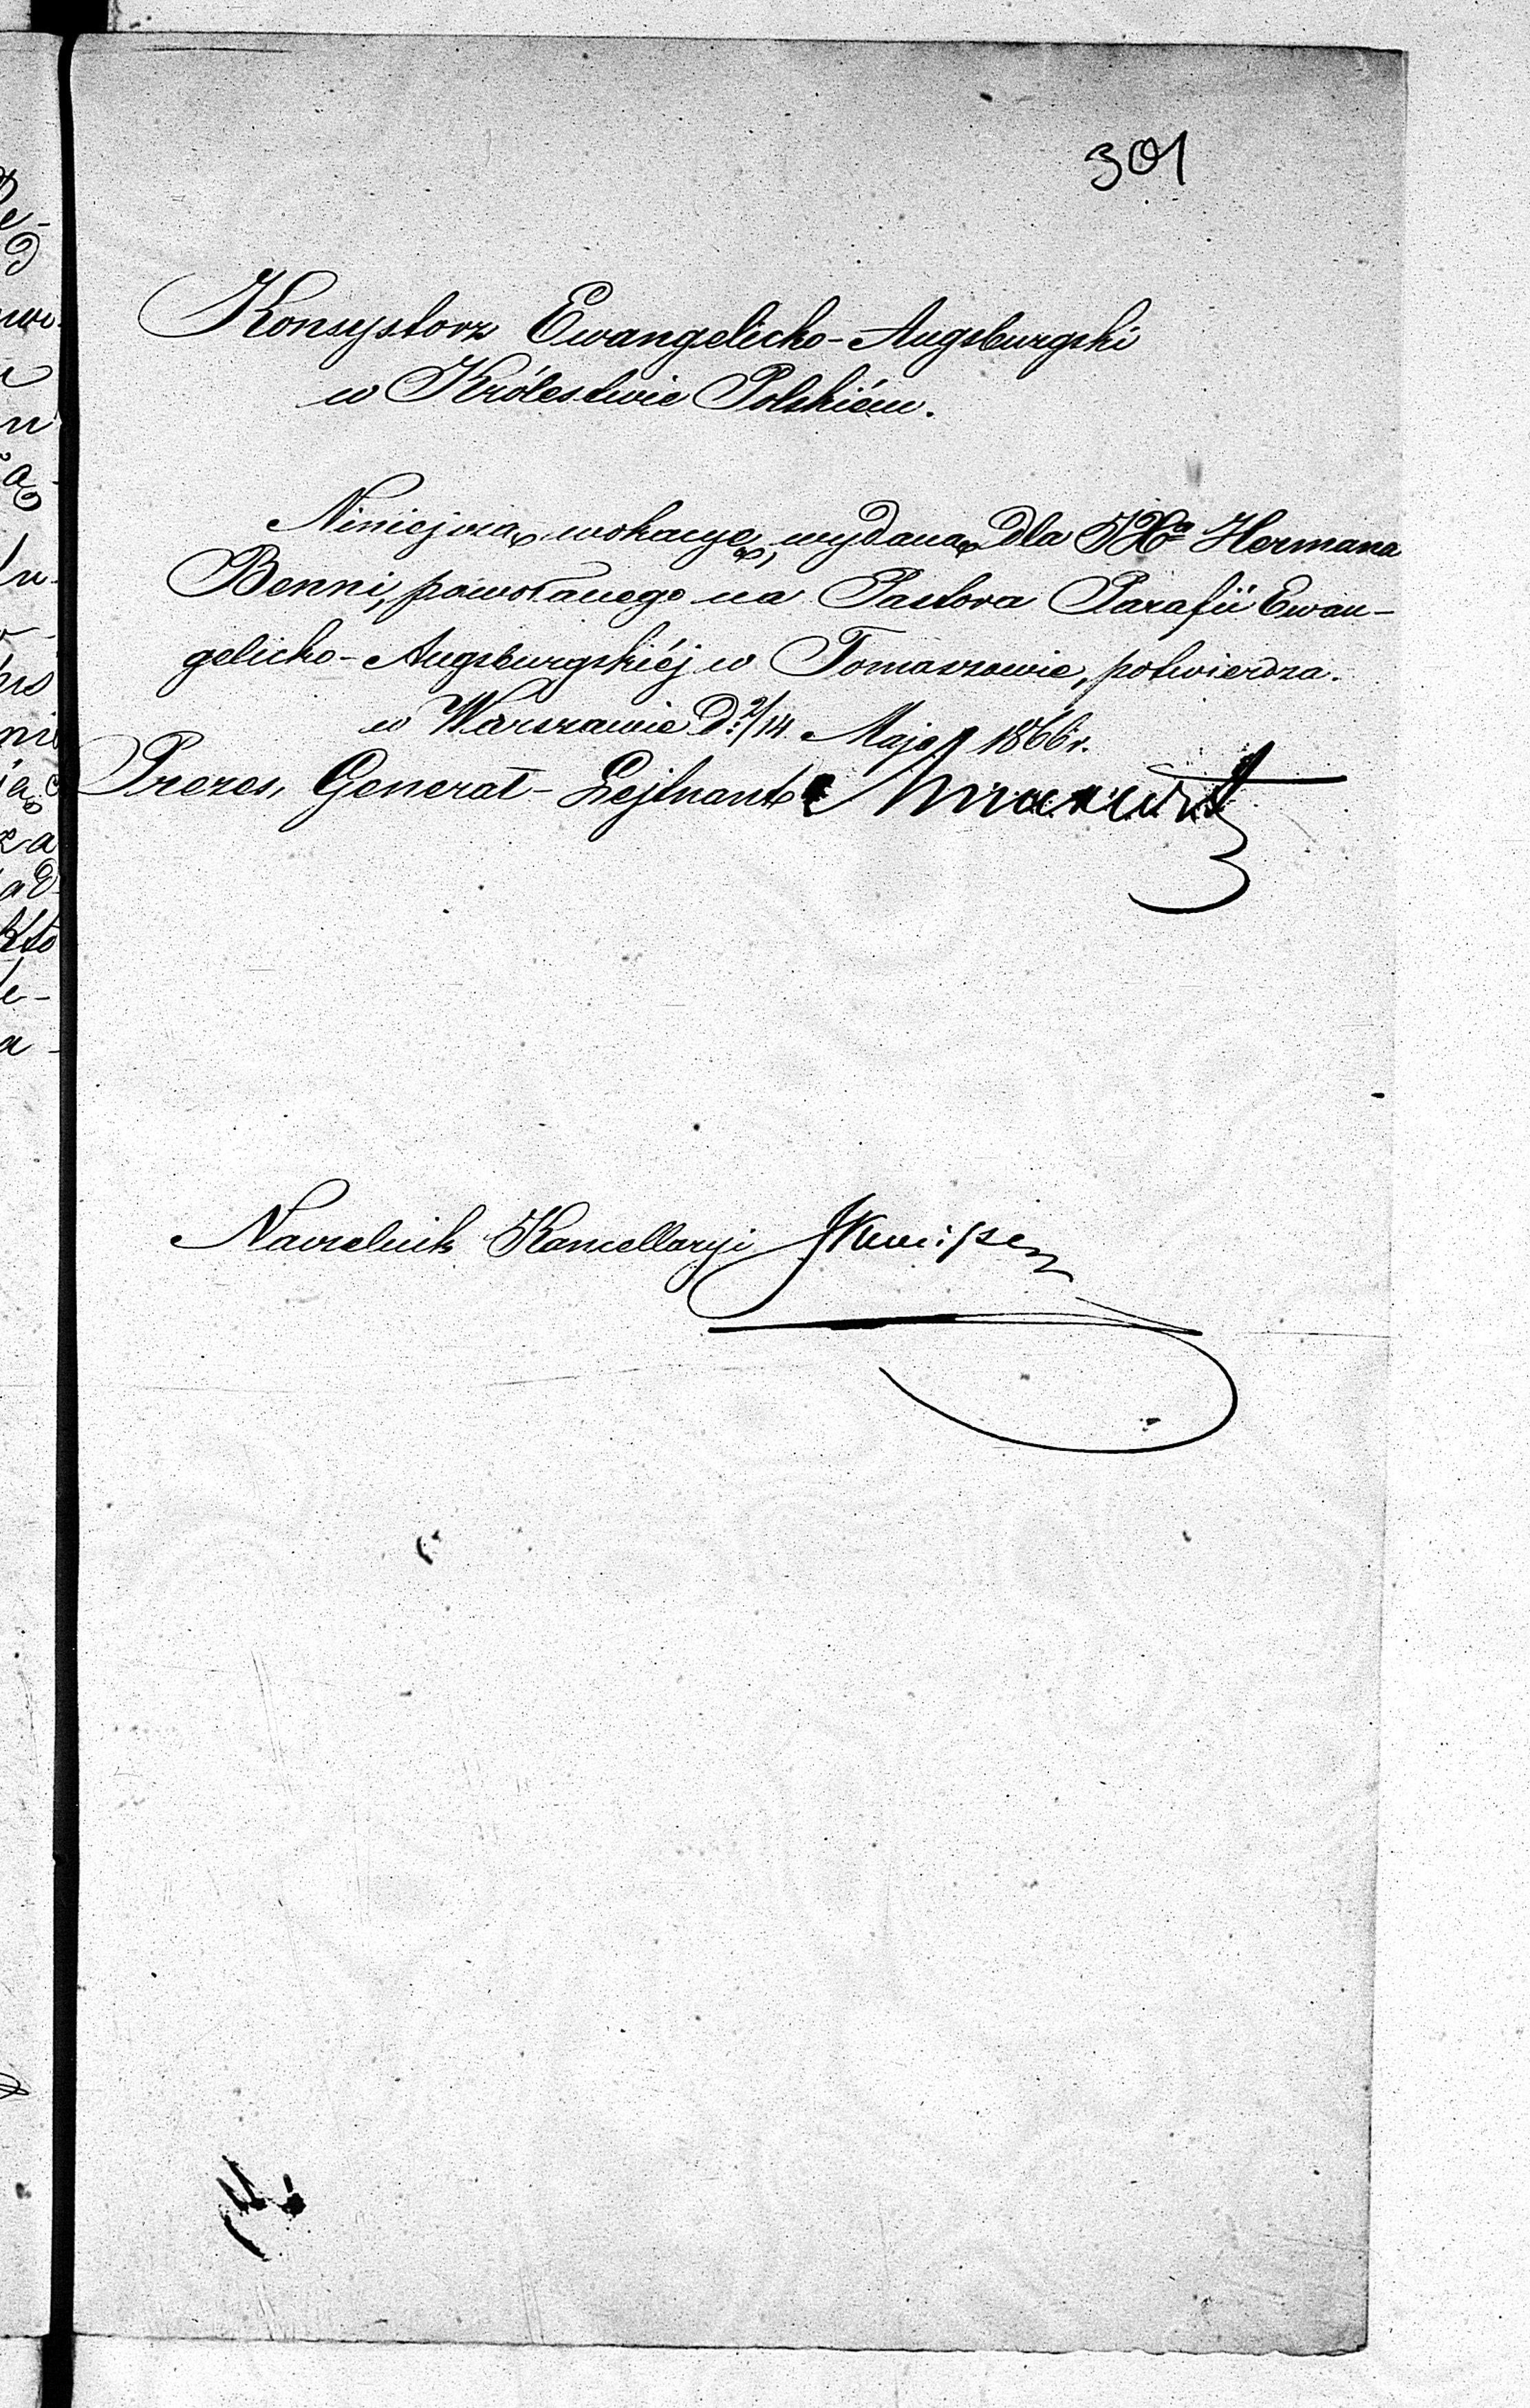 301
Konsystorz Ewangelicko-Augsburgski
w Królestwie Polskiém.
Niniejszą wokacyę, wydaną dla JXa Hermana
Benni, powołanego na Pastora Parafii Ewan-
gelicko-Augsburgskiéj w Tomaszowie, potwierdza.
w Warszawie d: 2/14 Maja 1866 r.
Prezes, Generał-Lejtnant
Naczelnik Kancellaryi